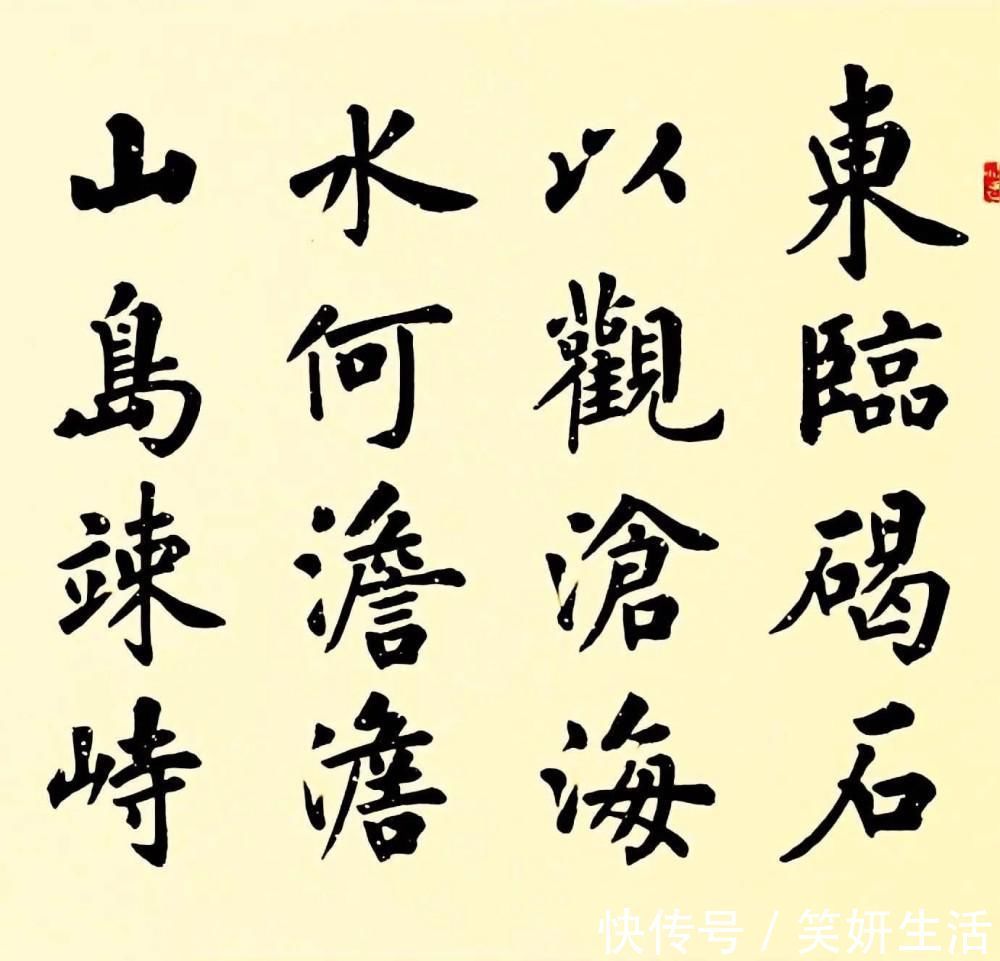 東臨碣石
以觀滄海
水何澹澹
山島竦峙
快传号/笑妍生活